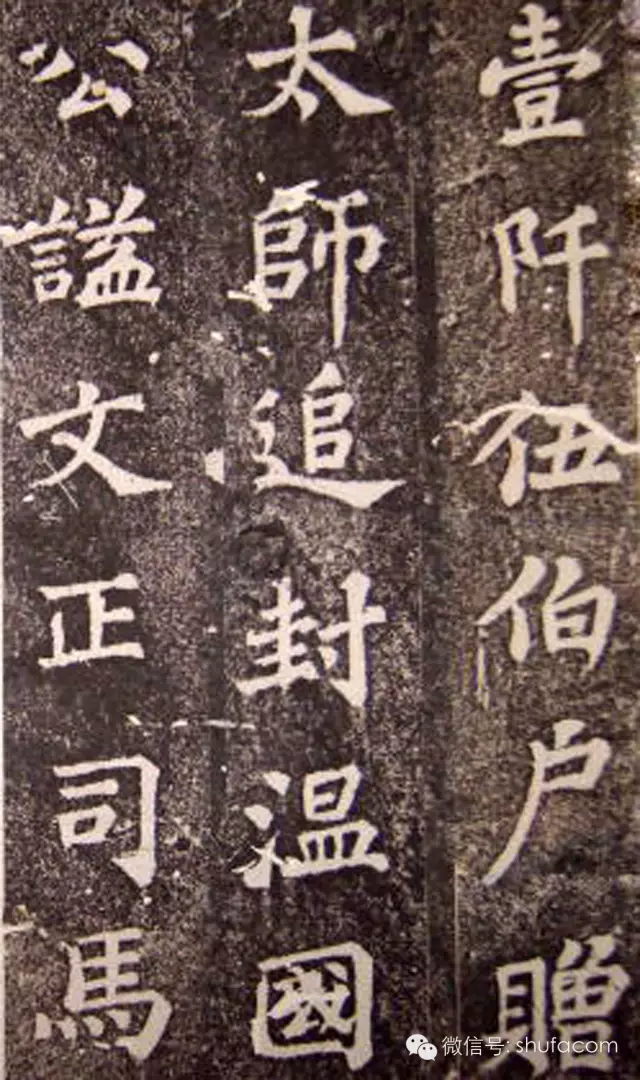 壹阡伍伯户贈
太師追封温國
公謚文正司馬
微信号: shufacom